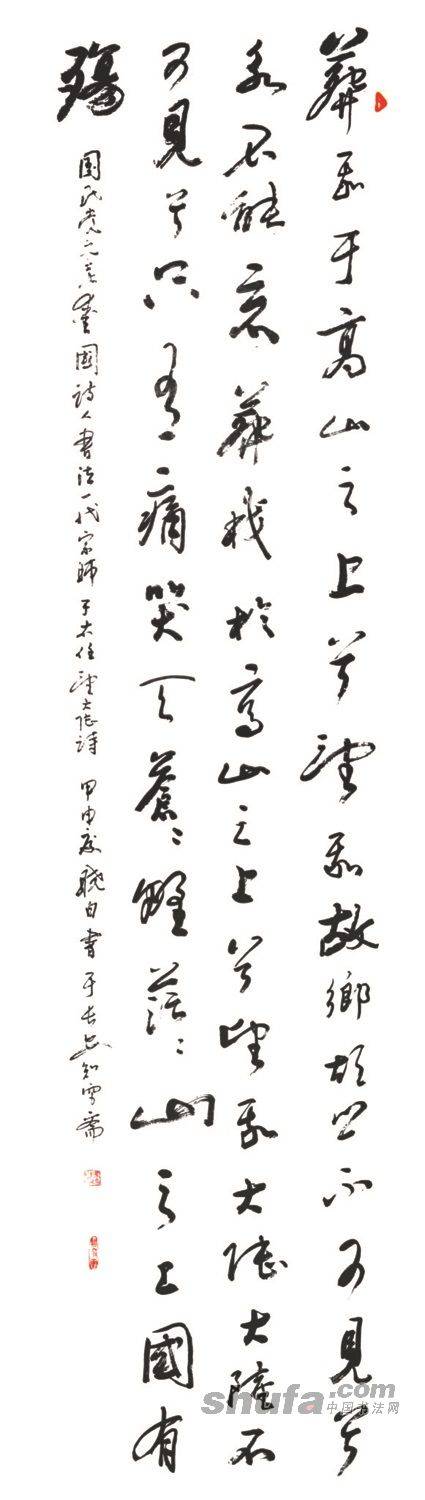 葬我于高山之上兮望我故鄉故鄉不可見兮
永不能忘葬我於高山之上兮望我大陸大陸不
可見兮只有痛哭天蒼〻野茫〻山之上國有
殤
國民党元老愛國詩人書法一代宗師于右任望大陸詩 甲申夏白書于長安知雪齋
shufa.com
中国书法网